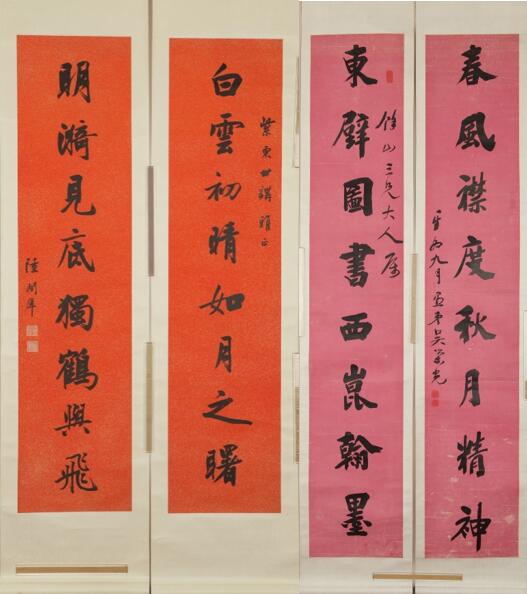 春風襟度秋月精神
九月
吳榮光
東壁圖書西崑翰墨
山三兄大人属
白雲初晴如月之曙
紫東世講雅正
眀漪見底獨鶴與飛
陸潤庠